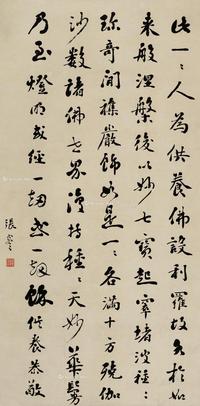 此一一人為供養佛設利羅故各於如
来般涅槃後以妙七寶起窣堵波種種
珍奇間雜嚴飾如是一一各滿十方殑伽
沙數諸佛世界復持種種天妙華鬘
乃至燈明或經一劫或一劫餘供養恭敬
張謇